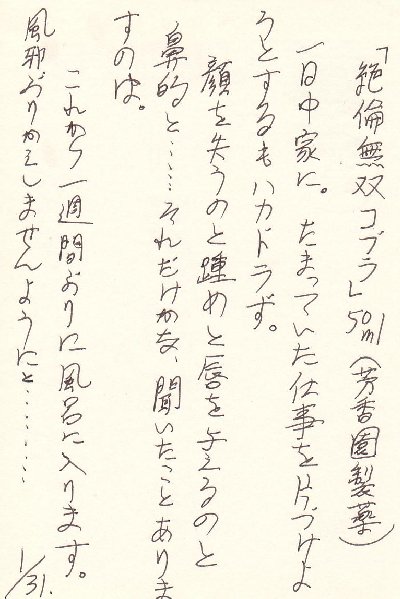 「絶倫無双コブラ」50ml(芳香園製薬)
一日中家に。たまっていた仕事を片づけよ
うとするもハカドラず。
顔を失うのと踵めと唇を与えるのと
鼻的と……それだけかな、聞いたことありま
すのは。
これから一週間ぶりに風呂に入ります。
風邪ぶりかえしませんようにと………
1/31.